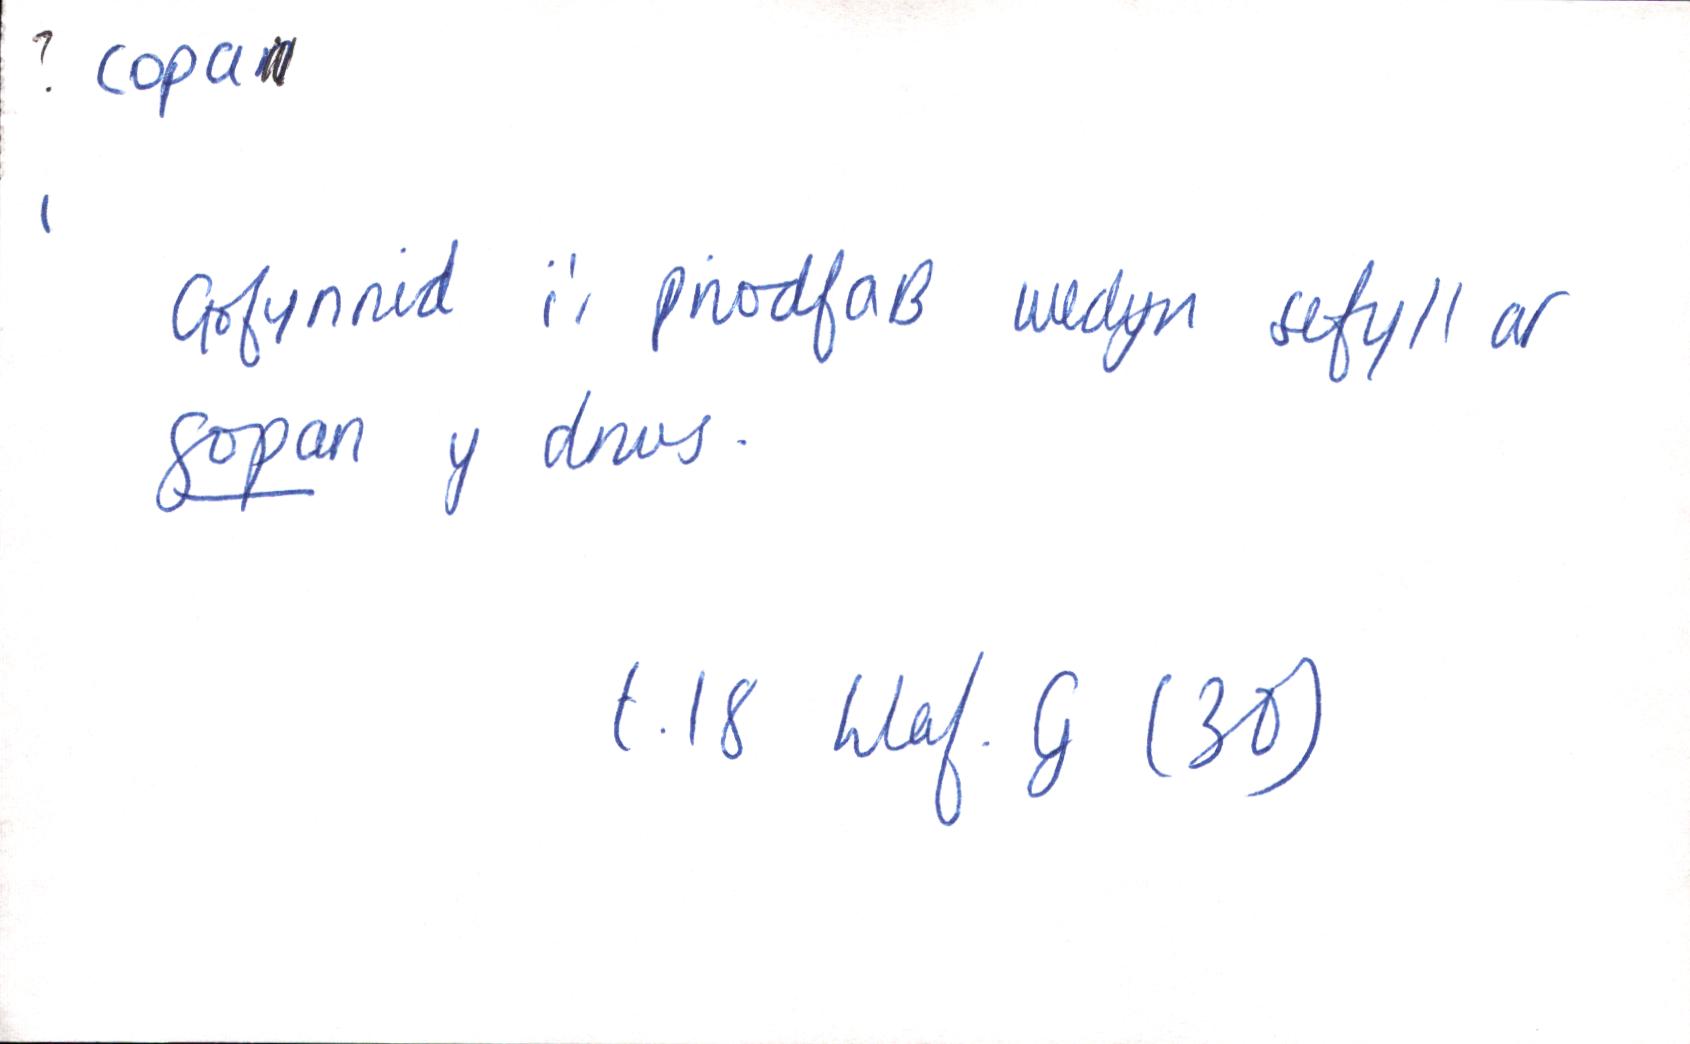 ? copan
1
Gofynnid i'r priodfab wedyn sefyll ar
gopan y drws.
t.18 Llaf. G (30)